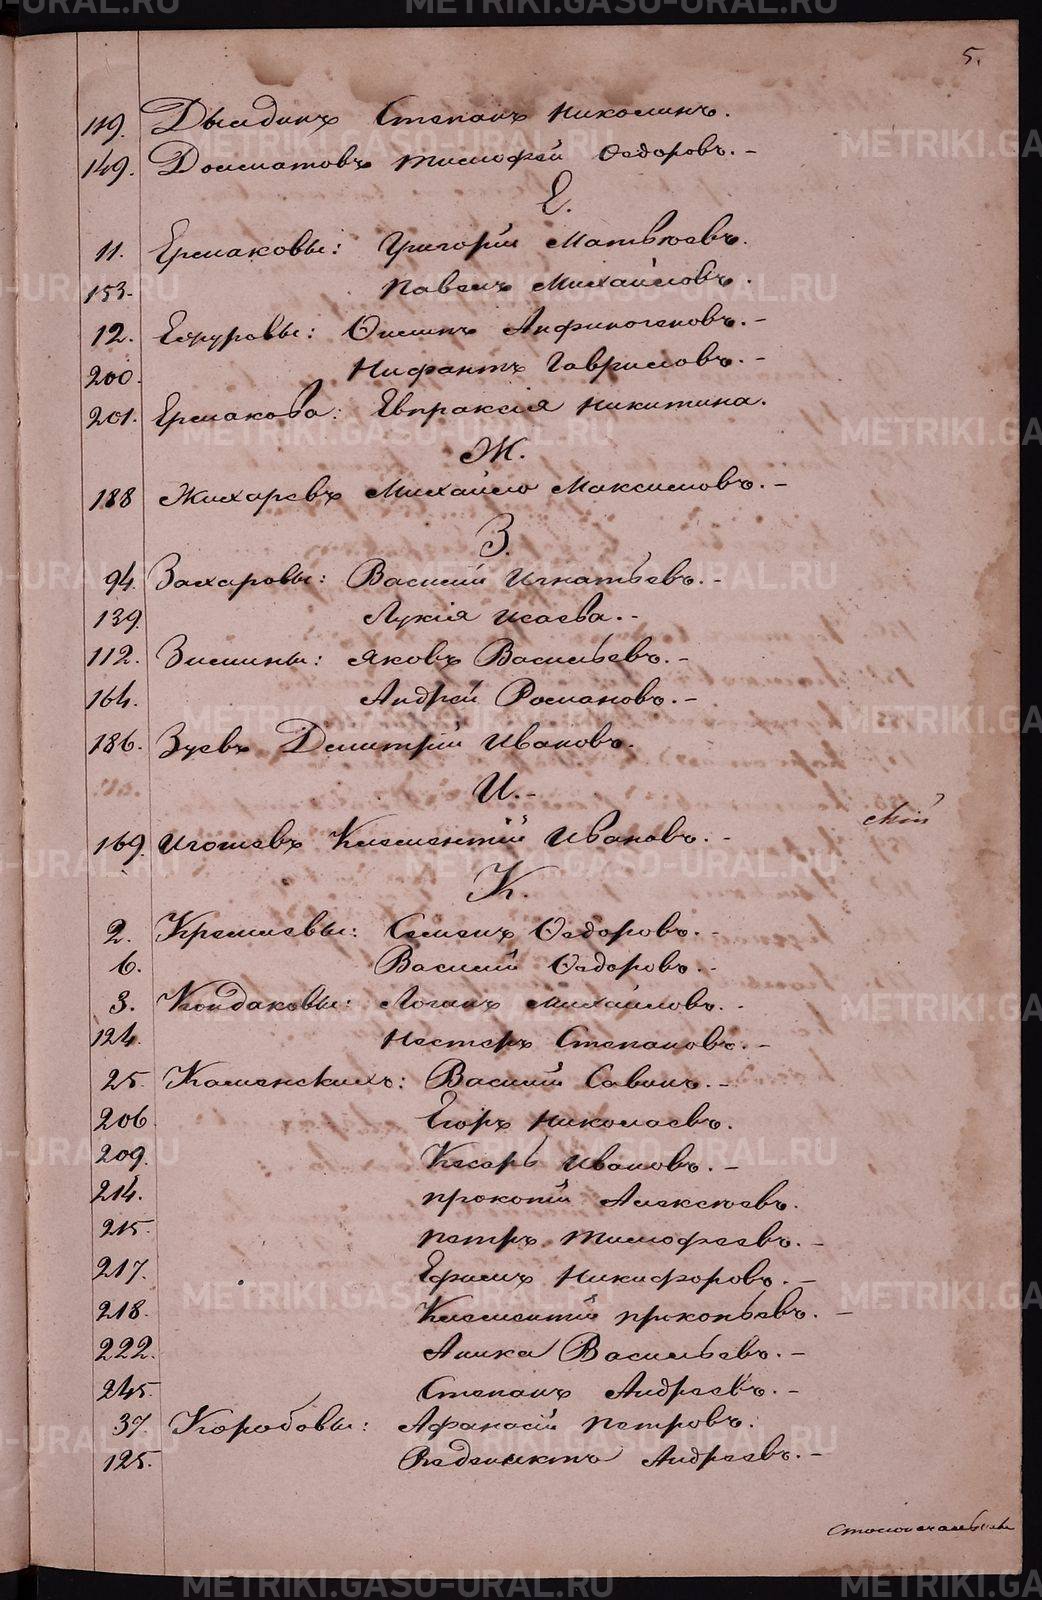 5.
119. Дылдинъ Степанъ Николинъ.
149. Долматовъ Тимофей Ѳедоровъ. -
Е.
11. Ермаковы: Григорій Матвѣевъ.
153. Павелъ Михайловъ.
12. Ефуровы: Осипъ Анфиногеновъ. -
200. Нифантъ Гавриловъ. -
201. Ермакова: Евпраксія Никитина.
Ж.
188 Жихаревъ Михайло Максимовъ. -
З.
94. Захаровы: Василій Игнатьевъ. -
139. Лукія Исаева. -
112. Зимины: Яковъ Васильевъ. -
164. Андрей Романовъ. -
186. Зуевъ Дмитрій Ивановъ.
И. -
169. Игошевъ Климентій Ивановъ. -
К.
2. Кремлевы: Семенъ Ѳедоровъ. -
6. Василій Ѳедоровъ. -
3. Кондаковы: Логинъ Михайловъ. -
124. Нестеръ Степановъ. -
25. Каменскихъ: Василій Савинъ. -
206 Егоръ Николаевъ.
209. Кесарь Ивановъ. -
214. Прокопій Алексѣевъ.
215. Петръ Тимофеевъ. -
217. Ефимъ Никифоровъ. -
218. Климентій Прокопьевъ. -
222. Аника Васильевъ. -
245. Степанъ Андреевъ. -
37. Коробовы: Афанасій Петровъ.
125. Веденихтъ Андреевъ. -
METRIKI.GASO-URAL.RU